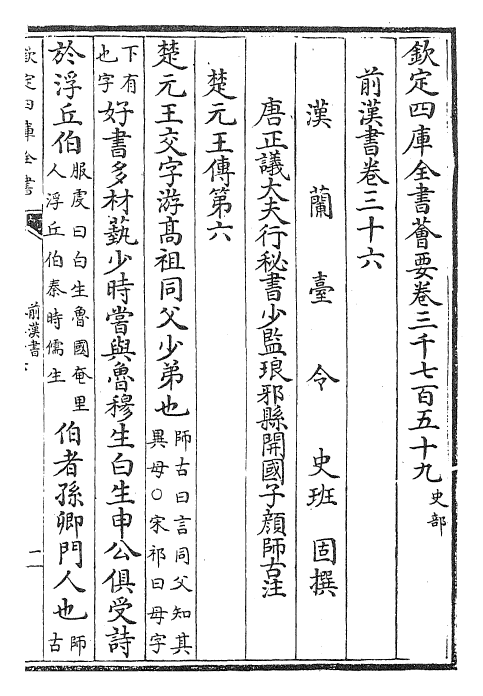 欽定四庫全書薈要卷三千七百五十九 史部
前漢書卷三十六
漢 蘭 臺 令 史班 固撰
唐正議大夫行秘書少監琅邪縣開國子顏師古注
楚元王傳第六
楚元王交字游髙祖同父少弟也 師古曰言同父知其異母○宋祁曰母字
下有也字 好書多材藝少時嘗與魯穆生白生申公俱受詩
於浮丘伯 服虔曰白生魯國奄里人浮丘伯秦時儒生 伯者孫卿門人也 師古
欽定四庫全書
前漢書
一